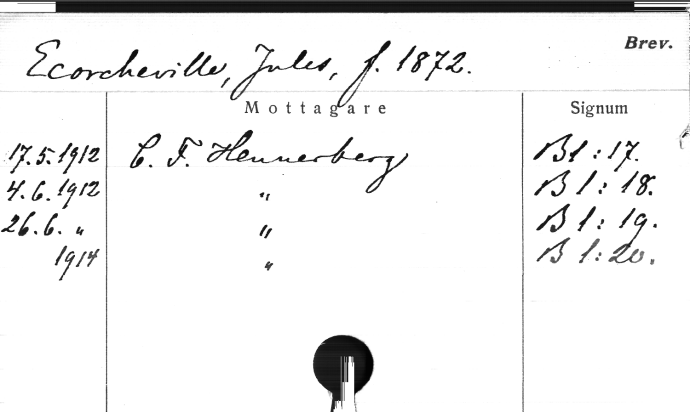 Brev.
Ecorcheville, Jules, f. 1872.
Mottagare Signum
17.5.1912 C. F. Hennerberg B1:17.
4.6.1912 " B 1:18.
26.6. " " B 1:19.
1914 " B 1:20.